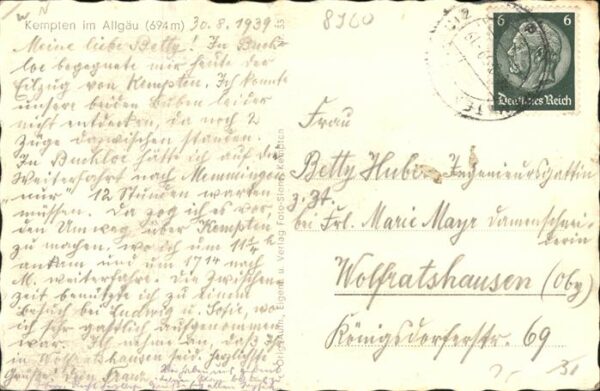 Kempten im Allgäu (694 m) 30.8.1939
8960
Meine liebe Betty! In Buch-
loe begegnete mir heute der
Eilzug von Kempten. Ich konnte
unsere beiden Buben leider
nicht entdecken, da noch 2
Züge dazwischen standen.
In Buchloe hätte ich auf die
Weiterfahrt nach Memmingen
"nur" 12 Stunden warten
müssen. Da zog ich es vor
den Umweg über Kempten
zu machen, wo ich um 11¼ h
ankam und um 17 14 nach
M. weiterfahre. Die Zwischen-
zeit benützte ich zu einem
Besuch bei Ludwig u. Sofie, wo
ich sehr gastlich aufgenommen
war. Ich nehme an, daß Ihr
in Wolfratshausen seid. Herzlichste
Grüße. Dein Franz
6 6
Deutsches Reich
Frau
Betty Huber, Ingenieursgattin
z. Zt.
bei Frl. Marie Mayr Damenschnei-
derin
Wolfratshausen (Oby)
Königsdorferstr. 69